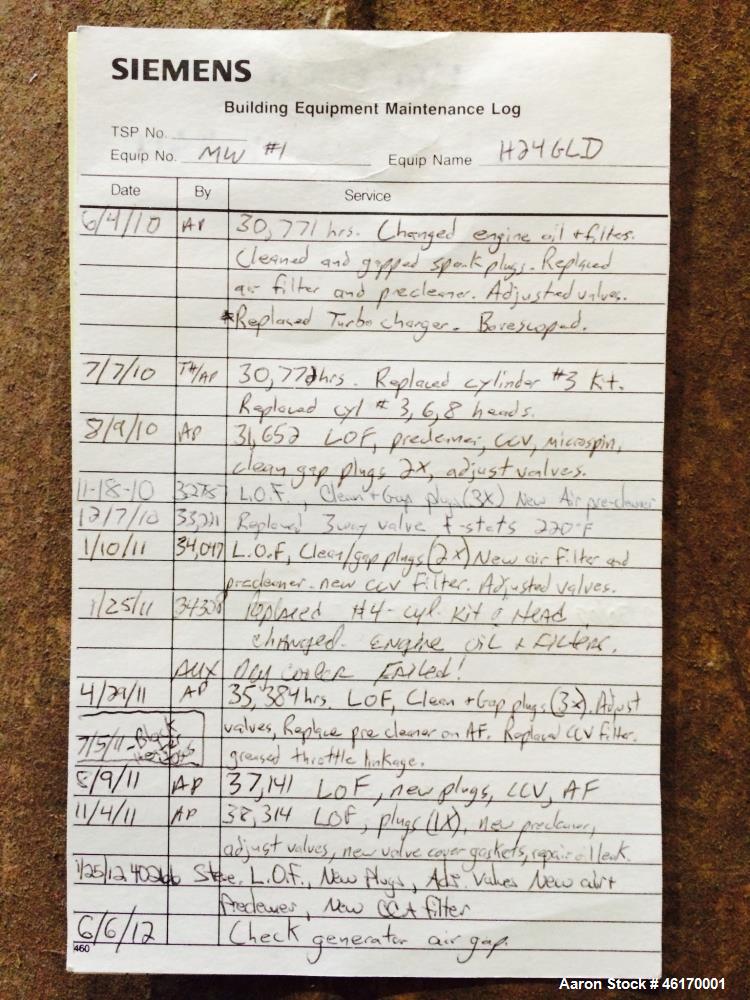 SIEMENS
Building Equipment Maintenance Log
TSP No.
Equip No. MW #1 Equip Name H24GLD
Date By Service
6/4/10 AP 30,771 hrs. Changed engine oil + filter.
Cleaned and gapped spark plugs. Replaced
air filter and precleaner. Adjusted valves.
*Replaced Turbo charger. Borescoped.
7/7/10 TH/AP 30,772 hrs. Replaced cylinder #3 Kit.
Replaced cyl # 3, 6, 8 heads.
8/9/10 AP 31,652 LOF, precleaner, CCV, microspin,
clean gap plugs 2X, adjust valves.
11-18-10 L.O.F., Clean + Gap plugs (3X) New Air pre-cleaner
12/7/10 33,221 Replaced 3way valve t-stats 220°F
1/10/11 34,047 L.O.F, Clean/gap plugs (2X) New air Filter and
precleaner. new CCV Filter. Adjusted valves.
1/25/11 34308 Replaced #4 - cyl. Kit & Head
changed. Engine OIL & FILTERS.
AUX Dry cooler FAILED!
4/29/11 AP 35,384 hrs. LOF, Clean + Gap plugs (3x). Adjust
valves, Replace pre cleaner on AF. Replaced CCV filter.
7/5/11 - Block
greased throttle linkage.
8/9/11 AP 37,141 LOF, new plugs, CCV, AF
11/4/11 AP 38,314 LOF, plugs (1X), new precleaner,
adjust valves, new valve cover gaskets, repair oil leak.
1/25/12 40266 Steve. L.O.F., New Plugs, Adj. Valves New air
Precleaner, New CCA filter
6/6/12 Check generator air gap.
460
Aaron Stock # 46170001